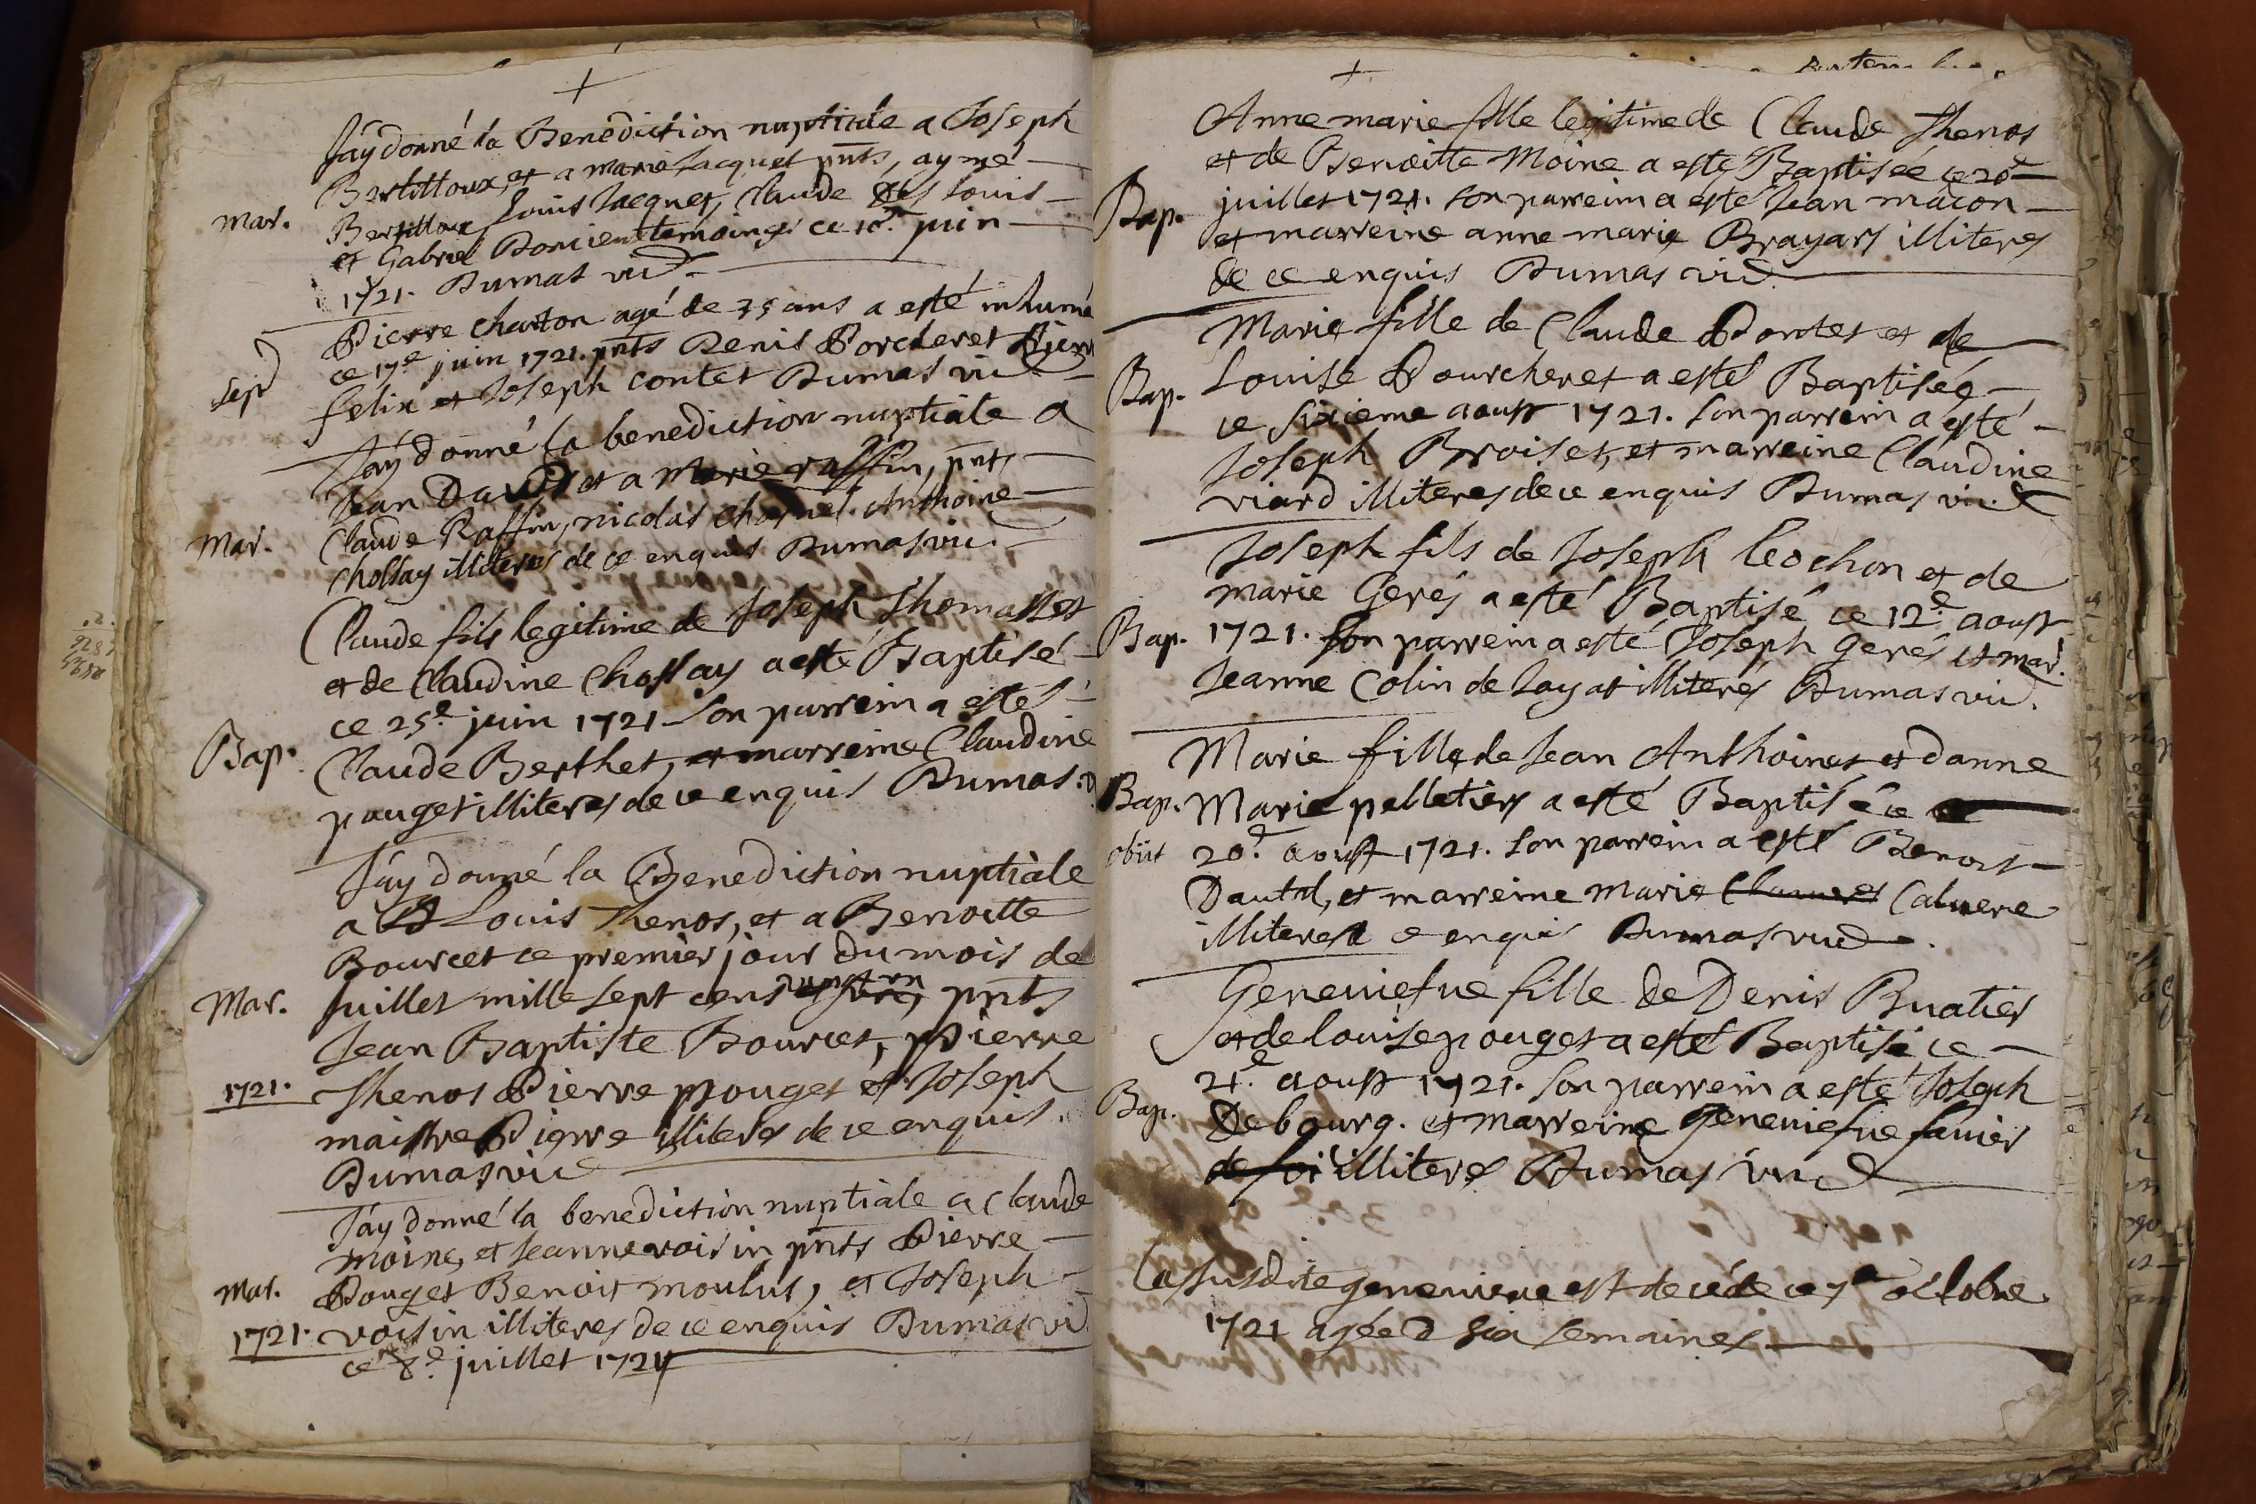 Jay donné la Benediction nuptiale a Joseph
Bertilloux, et a marie Jacquet pnts, aymé
Bertilloux Louis Jacquet, Claude Louis
mar.
et Gabriel temoings ce juin
1721. Dumas vic
Pierre Charton agé de 35 ans a esté inhumé
ce 17e juin 1721. pnts Denis Borcheret Pierre
Sepd
felix et Joseph contet Dumas vic
Jay donné la benediction nuptiale a
Jean David et a Marie raffin, pnts
Claude Raffin, nicolas Anthoine
Mar.
Chossay illiteres de ce enquis Dumas vic.
Claude fils legitime de Joseph Thomasset
et de Claudine Chossay a esté Baptisé
ce 25e. juin 1721 Son parrein a esté
Bap.
Claude Berthet, et marreine Claudine
pouget illiteres de ce enquis Dumas
Jay donné la Benediction nuptiale
a Louis Thenos, et a Benoitte
Bourcet ce premier jour du mois de
Mar.
Juillet mille sept cens pnts
Jean Baptiste Bourcet, Pierre
1721.
Thenos Pierre pouget et Joseph
maistre Pierre illiteres de ce enquis.
Dumas vic
Jay donné la benediction nuptiale a Claude
moine, et Jeanne voisin pnts Pierre
Mar.
Pouget Benoit moulut, et Joseph
1721.
voisin illiteres de ce enquis Dumas vic
ce 8e. juillet 1721
Anne marie fille legitime de Claude Thenos
et de Benoitte Moine a esté Baptisée ce 20e
Bap.
juillet 1721. Son parrein a esté Jean mâcon
et marreine anne marie Brayars illiteres
de ce enquis Dumas vic.
Marie fille de Claude Pontet et de
Bap.
Louise Bourcheret a esté Baptisée
ce sixieme aoust 1721. Son parrein a esté
Joseph Broiset, et marreine Claudine
viard illiteres de ce enquis Dumas vic
Joseph fils de Joseph Cochon et de
marie Gerés a esté Baptisé ce 12e. aoust
Bap.
1721. Son parrein a esté Joseph gerés et mar.
Jeanne Colin de Jayat illiterés Dumas vic.
Marie fille de Jean Anthoinet et danne
Bap.
Marie pelletiers a esté Baptisé ce
obiit
20e. aoust 1721. Son parrein a esté Benoist
Dautel, et marreine Marie Caluere
illiteres d ce enquis Dumas vic.
Geneuiefue fille de Denis Buatier
et de louise pouget a esté Baptisé ce
21e. aoust 1721. Son parrein a esté Joseph
Bap.
De bourg. et marreine geneuiefue fauier
illiteres Dumas vic
La susdite geneuieue est decédé ce 7e octobre
1721 agée d six semaines